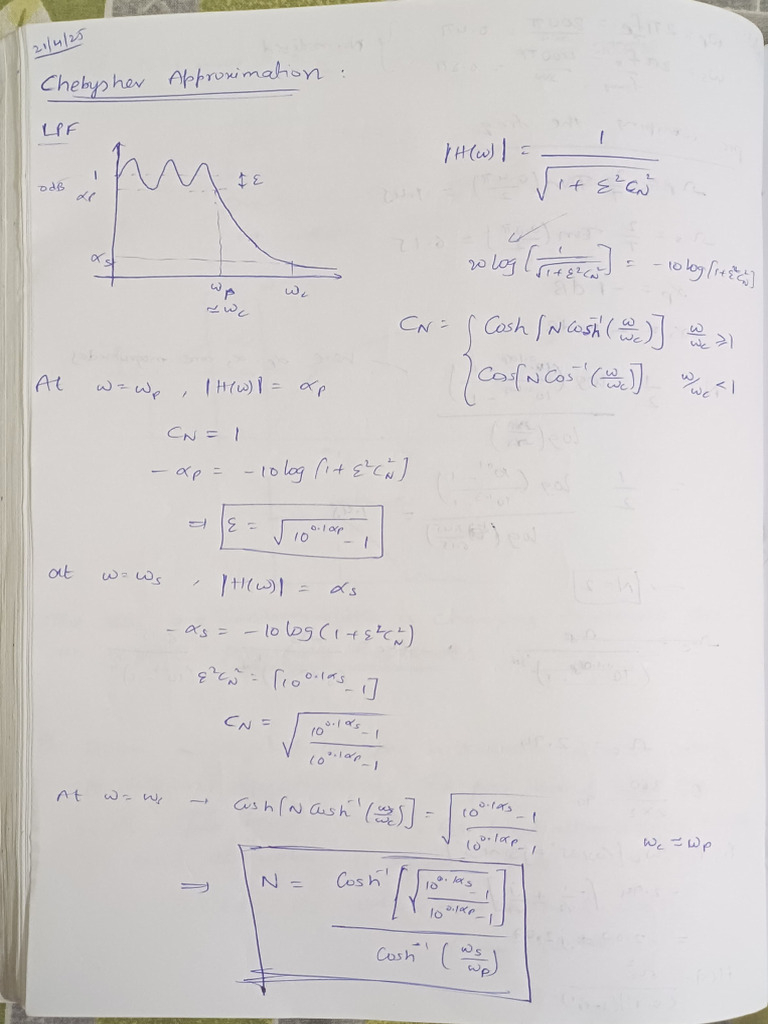 21/4/25
Chebyshev Approximation :
LPF
|H(ω)| = 1 / √(1 + ε²C_N²)
0dB 1
αp
↕ε
αs
ωp ωc
≃ωc
20 log [1 / √(1+ε²C_N²)] = -10 log [1+ε²C_N²]
C_N = { Cosh [N Cosh⁻¹ (ω/ωc)] ω/ωc ≥1
Cos[N Cos⁻¹ (ω/ωc)] ω/ωc < 1
At ω = ωp , |H(ω)| = αp
C_N = 1
- αp = -10 log [1 + ε²C_N²]
⇒ ε = √(10^0.1αp - 1)
at ω = ωs , |H(ω)| = αs
- αs = -10 log (1 + ε²C_N²)
ε²C_N² = [10^0.1αs - 1]
C_N = √((10^0.1αs - 1) / (10^0.1αp - 1))
At ω = ωs → Cosh [N Cosh⁻¹ (ωs/ωc)] = √((10^0.1αs - 1) / (10^0.1αp - 1))
ωc ≃ ωp
⇒ N = Cosh⁻¹ [√((10^0.1αs - 1) / (10^0.1αp - 1))] / Cosh⁻¹ (ωs/ωp)